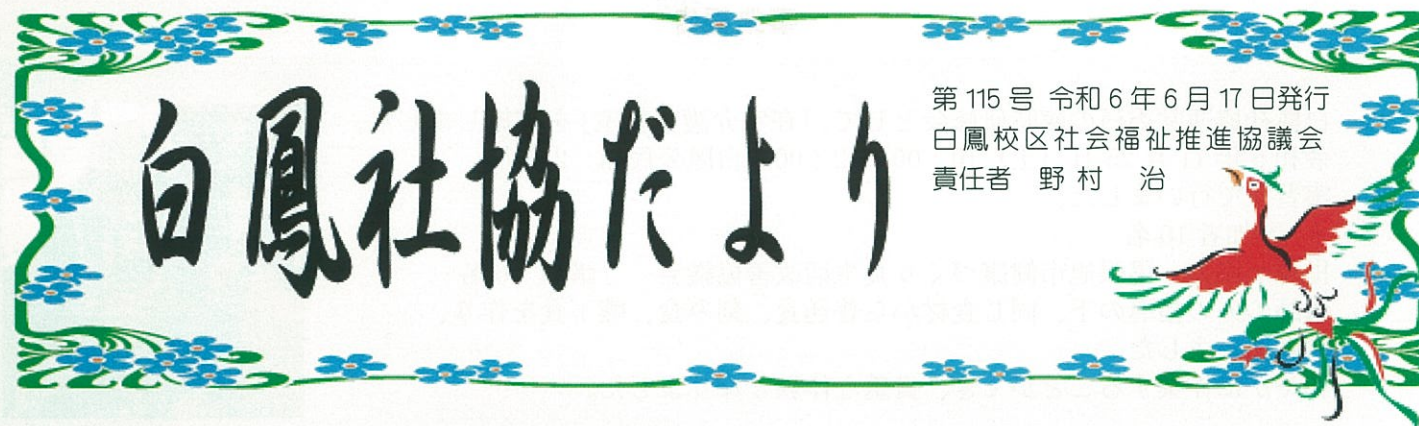 白鳳社協だより
第115号 令和6年6月17日発行
白鳳校区社会福祉推進協議会
責任者 野村 治